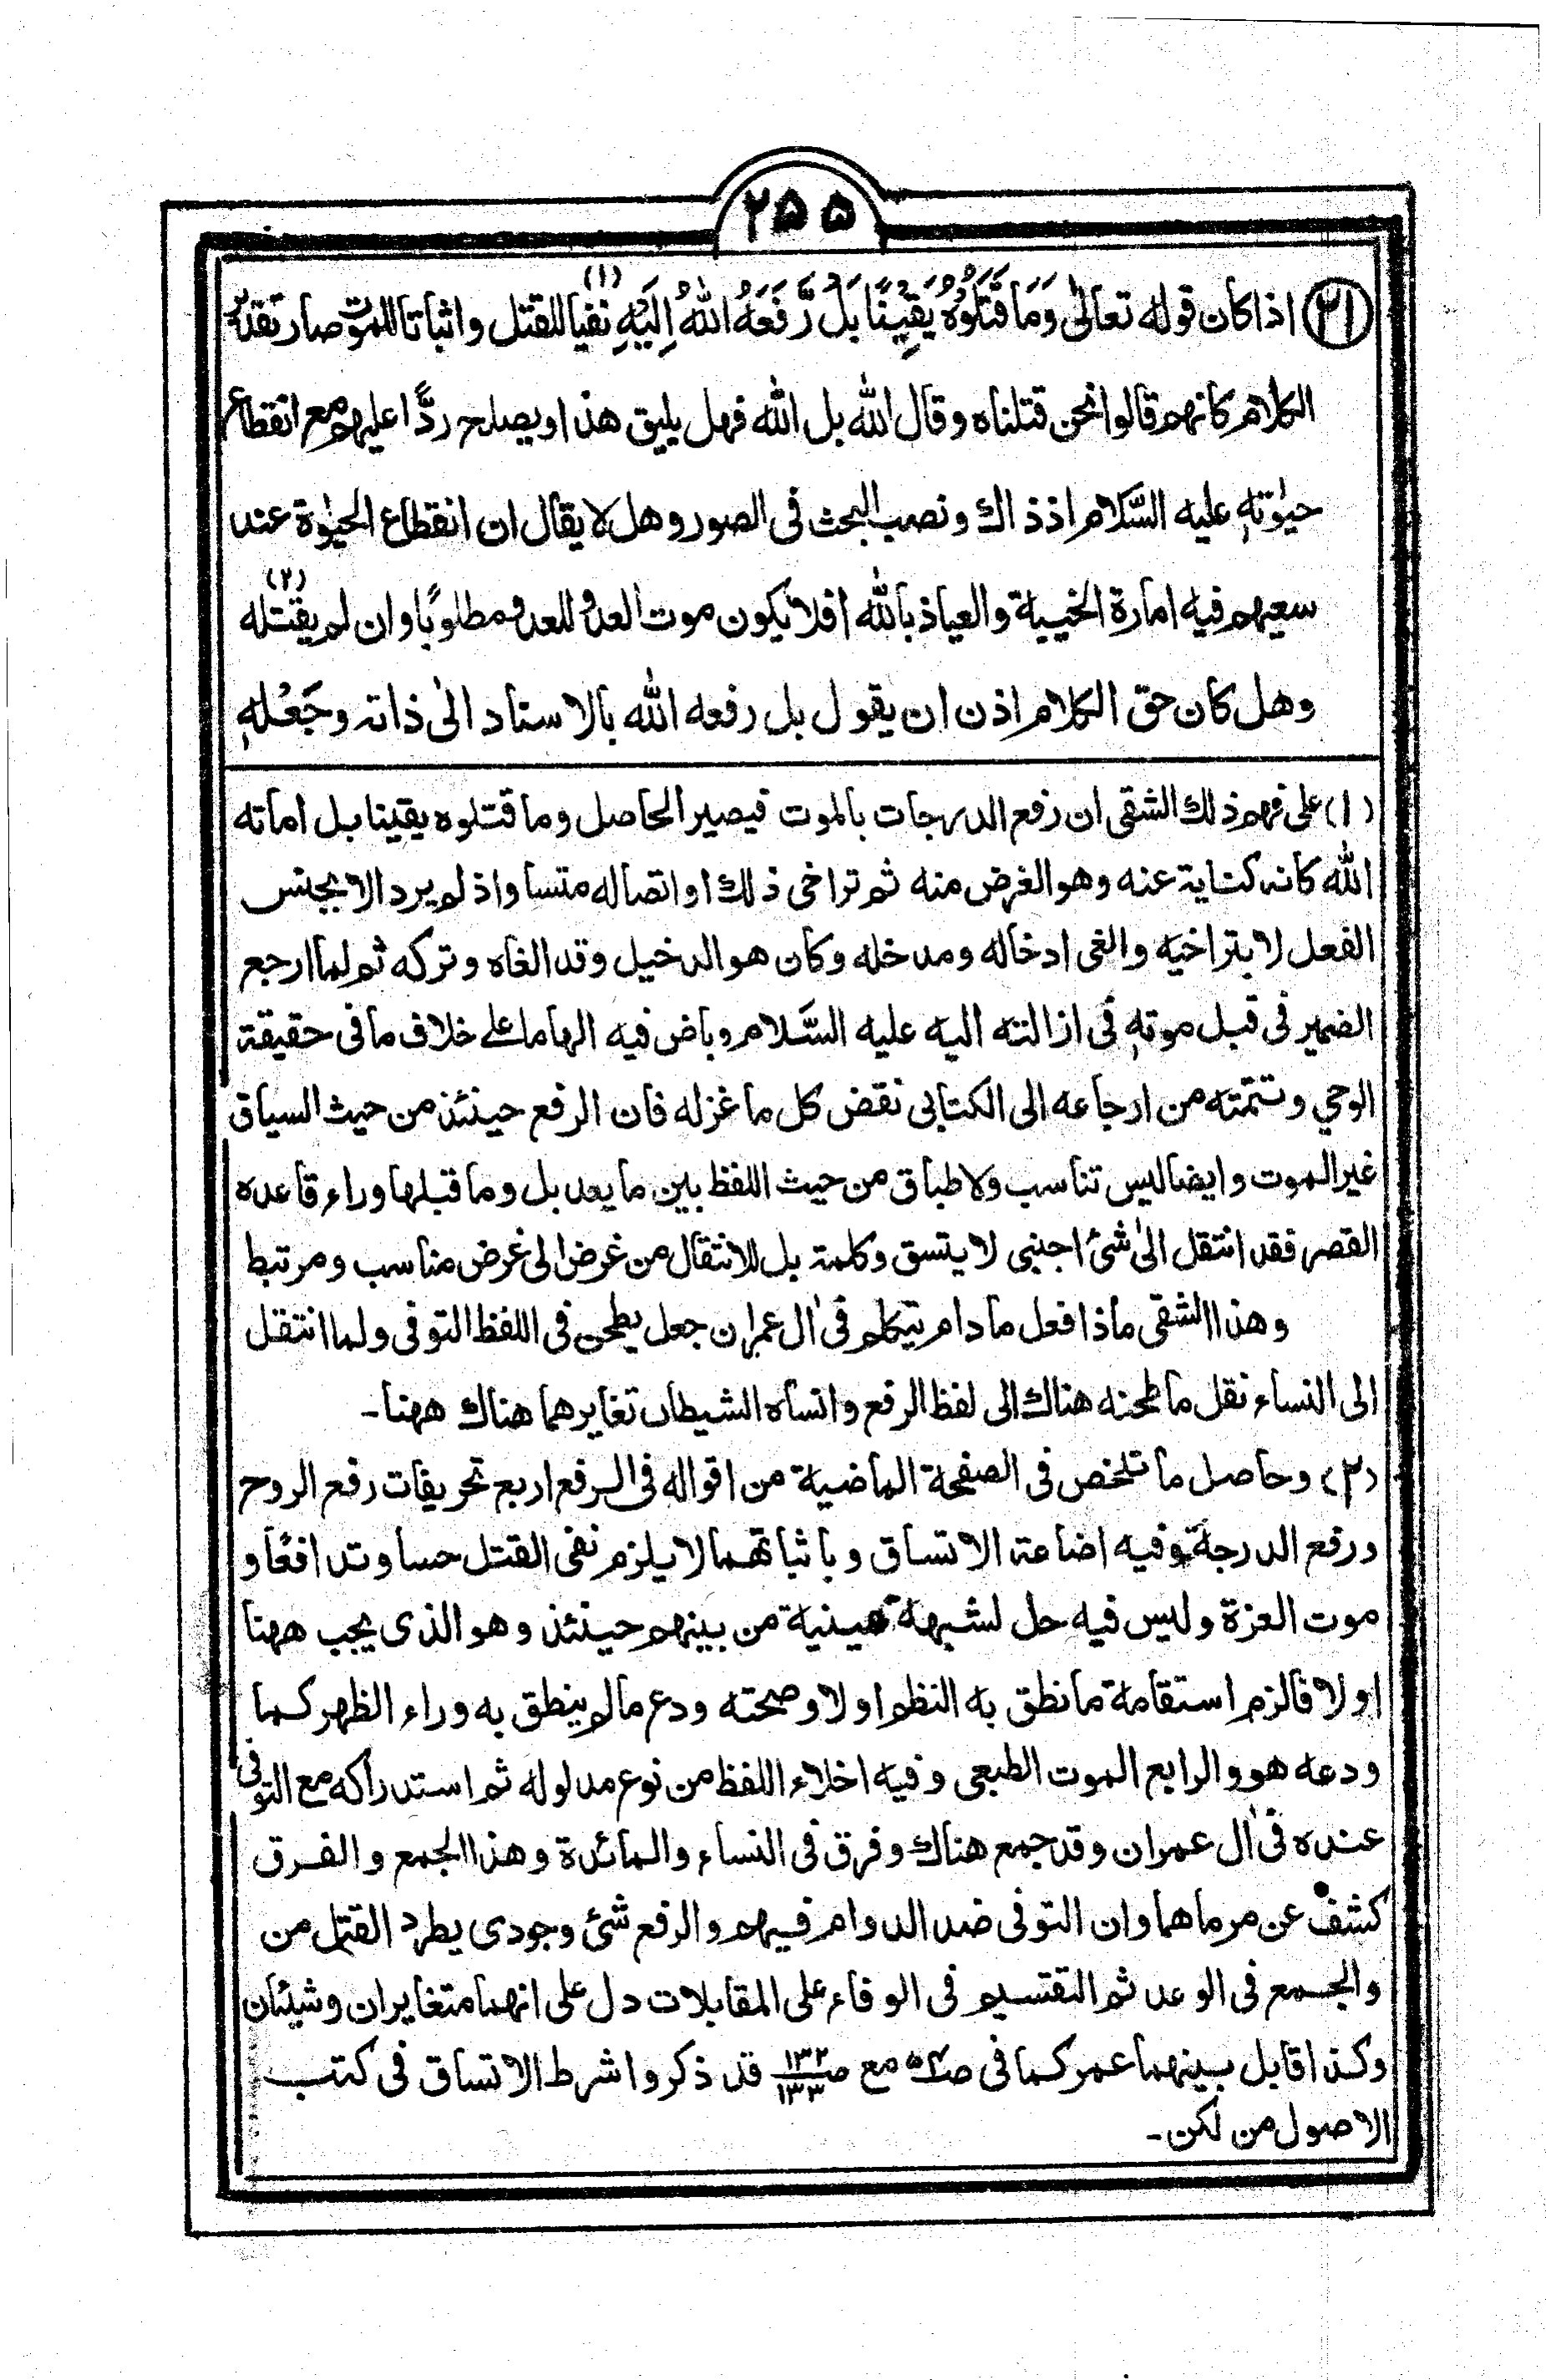 ٢٥٥
(٢١) اذا كان قوله تعالىٰ وَمَا قَتَلُوْهُ يَقِيْنًا بَلْ رَّفَعَهُ اللهُ اِلَيْهِ (١) نفيا للقتل واثباتا للموت صار تقدير
الكلام كانهم قالوا نحن قتلناه وقال الله بل الله فهل يليق هذا او يصلح ردًّا عليهم مع انقطاع
حيٰوتهٖ عليه السَّلام اذ ذاك ونصب البحث فى الصور وهل لا يقال ان انقطاع الحيٰوة عند
سعيهم فيه امارة الخيبة والعياذ بالله افلا يكون موت العدو للعدو مطلوبًا وان لم يقتله (٢)
وهل كان حق الكلام اذن ان يقول بل رفعه الله بالاسناد الىٰ ذاته وجَعْلهٖ
(١) على فهم ذلك الشقى ان رفع الدرجات بالموت فيصير الحاصل وما قتلوه يقينا بل اماته
الله كانه كناية عنه وهو الغرض منه ثم تراخى ذلك او اتصاله متساو اذ لم يرد الا بجنس
الفعل لا بتراخيه والغى ادخاله ومدخله وكان هو الدخيل وقد الغاه وتركه ثم لما ارجع
الضمير فى قبل موتهٖ فى ازالته اليه عليه السَّلام وباض فيه الهاما على خلاف ما فى حقيقة
الوحي وتتمته من ارجاعه الى الكتابى نقض كل ما غزله فان الرفع حينئذ من حيث السياق
غير الموت وايضا ليس تناسب ولا طباق من حيث اللفظ بين ما بعد بل وما قبلها وراء قاعده
القصر فقد انتقل الىٰ شئ اجنبى لا يتسق وكلمة بل للانتقال من غرض الى غرض مناسب ومرتبط
وهذا الشقى ماذا فعل ما دام يتكلم فى اٰل عمران جعل يطحن فى اللفظ التوفى ولما انتقل
الى النساء نقل ما طحنه هناك الى لفظ الرفع وانساه الشيطان تغايرهما هناك ههنا۔
(٢) وحاصل ما تلخص فى الصفحة الماضية من اقواله فى الرفع اربع تحريفات رفع الروح
ورفع الدرجة وفيه اضاعة الاتساق وباثباتهما لا يلزم نفى القتل حسا وتدافعًا و
موت العزة وليس فيه حل لشبهة من بينهم حينئذ وهو الذى يجب ههنا
اولا فالزم استقامة ما نطق به النظم اولا وصحته ودع مالم ينطق به وراء الظهر كما
ودعه هو والرابع الموت الطبعى وفيه اخلاء اللفظ من نوع مدلوله ثم استدراكه مع التوفى
عنده فى اٰل عمران وقد جمع هناك وفرق فى النساء والمائدة وهذا الجمع والفرق
كشف عن مرماهما وان التوفى ضد الدوام فيهم والرفع شئ وجودى يطرد القتل من
والجمع فى الوعد ثم التقسيم فى الوفاء على المقابلات دل على انهما متغايران وشيئان
وكذا قابل بينهما عمر كما فى مع ص١٣٢/١٣٣ قد ذكروا شرط الاتساق فى كتب
الاصول من لكن۔